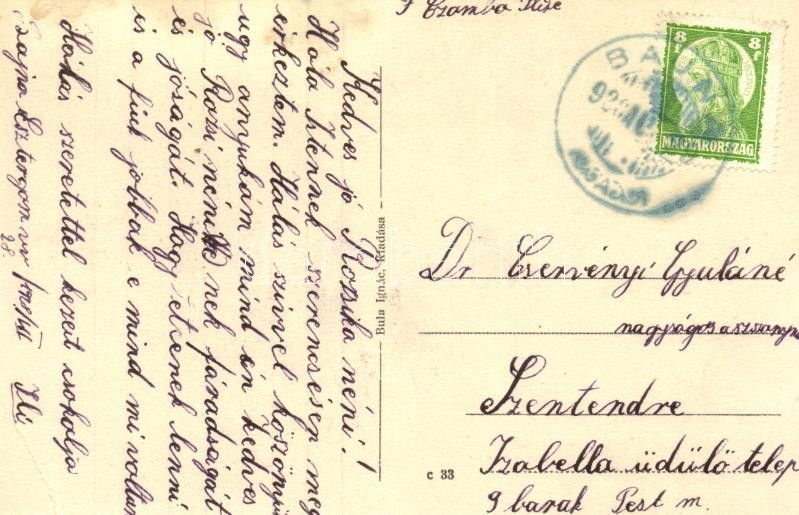 F Czamba Ilise
8f 8f
MAGYARORSZÁG
Kedves jó Rózsika néni!
Hála Istennek szerencsésen meg
érkeztem. Hálás szívvel köszönjük
ugy anyukám mind én kedves
jó Rózsi néninek fáradságát
és jóságát. Hogy etszenek lenni
és a fiuk jobbak e mind mi voltunk
Hálás szeretettel kezeit csokolja
Ili
Bula Ignác, kiadása
c 33
Dr Cservényi Gyuláné
nagyságos asszonynak
Szentendre
Izabella üdülő telep
9 barak Pest m.